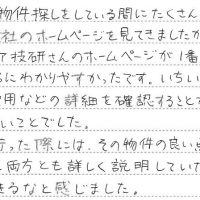 物件探しをしている間にたくさん
社のホームページを見てきましたが
ア技研さんのホームページが1番
るにわかりやすかったです。いちい
用などの詳細を確認することと
いことでした。
行った際には、その物件の良い点
両方とも詳しく説明してい
きるなと感じました。